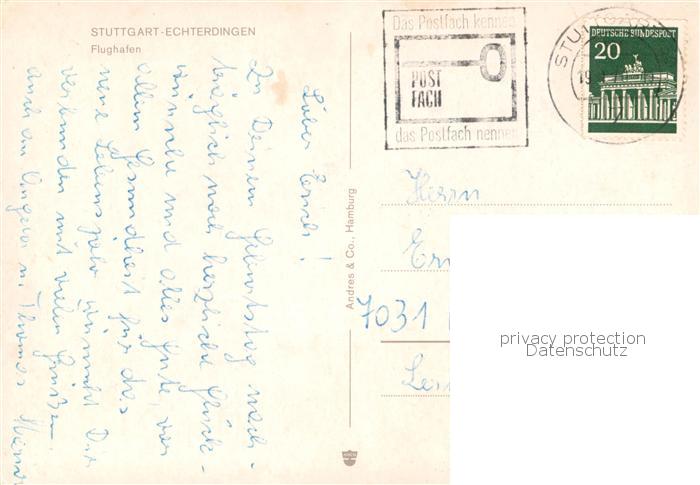 STUTTGART-ECHTERDINGEN
Flughafen
Lieber Erich!
Zu Deinem Geburtstag nach-
träglich noch herzliche Glück-
wünsche und alles Gute, vor
allem Gesundheit für das
neue Lebensjahr wünscht Dir
verbunden mit vielen Grüßen
auch an Angela u. Thomas
Andres & Co., Hamburg
Das Postfach kennen
POST
FACH
das Postfach nennen
STU
19
DEUTSCHE BUNDESPOST
20
Herrn
7031
privacy protection
Datenschutz